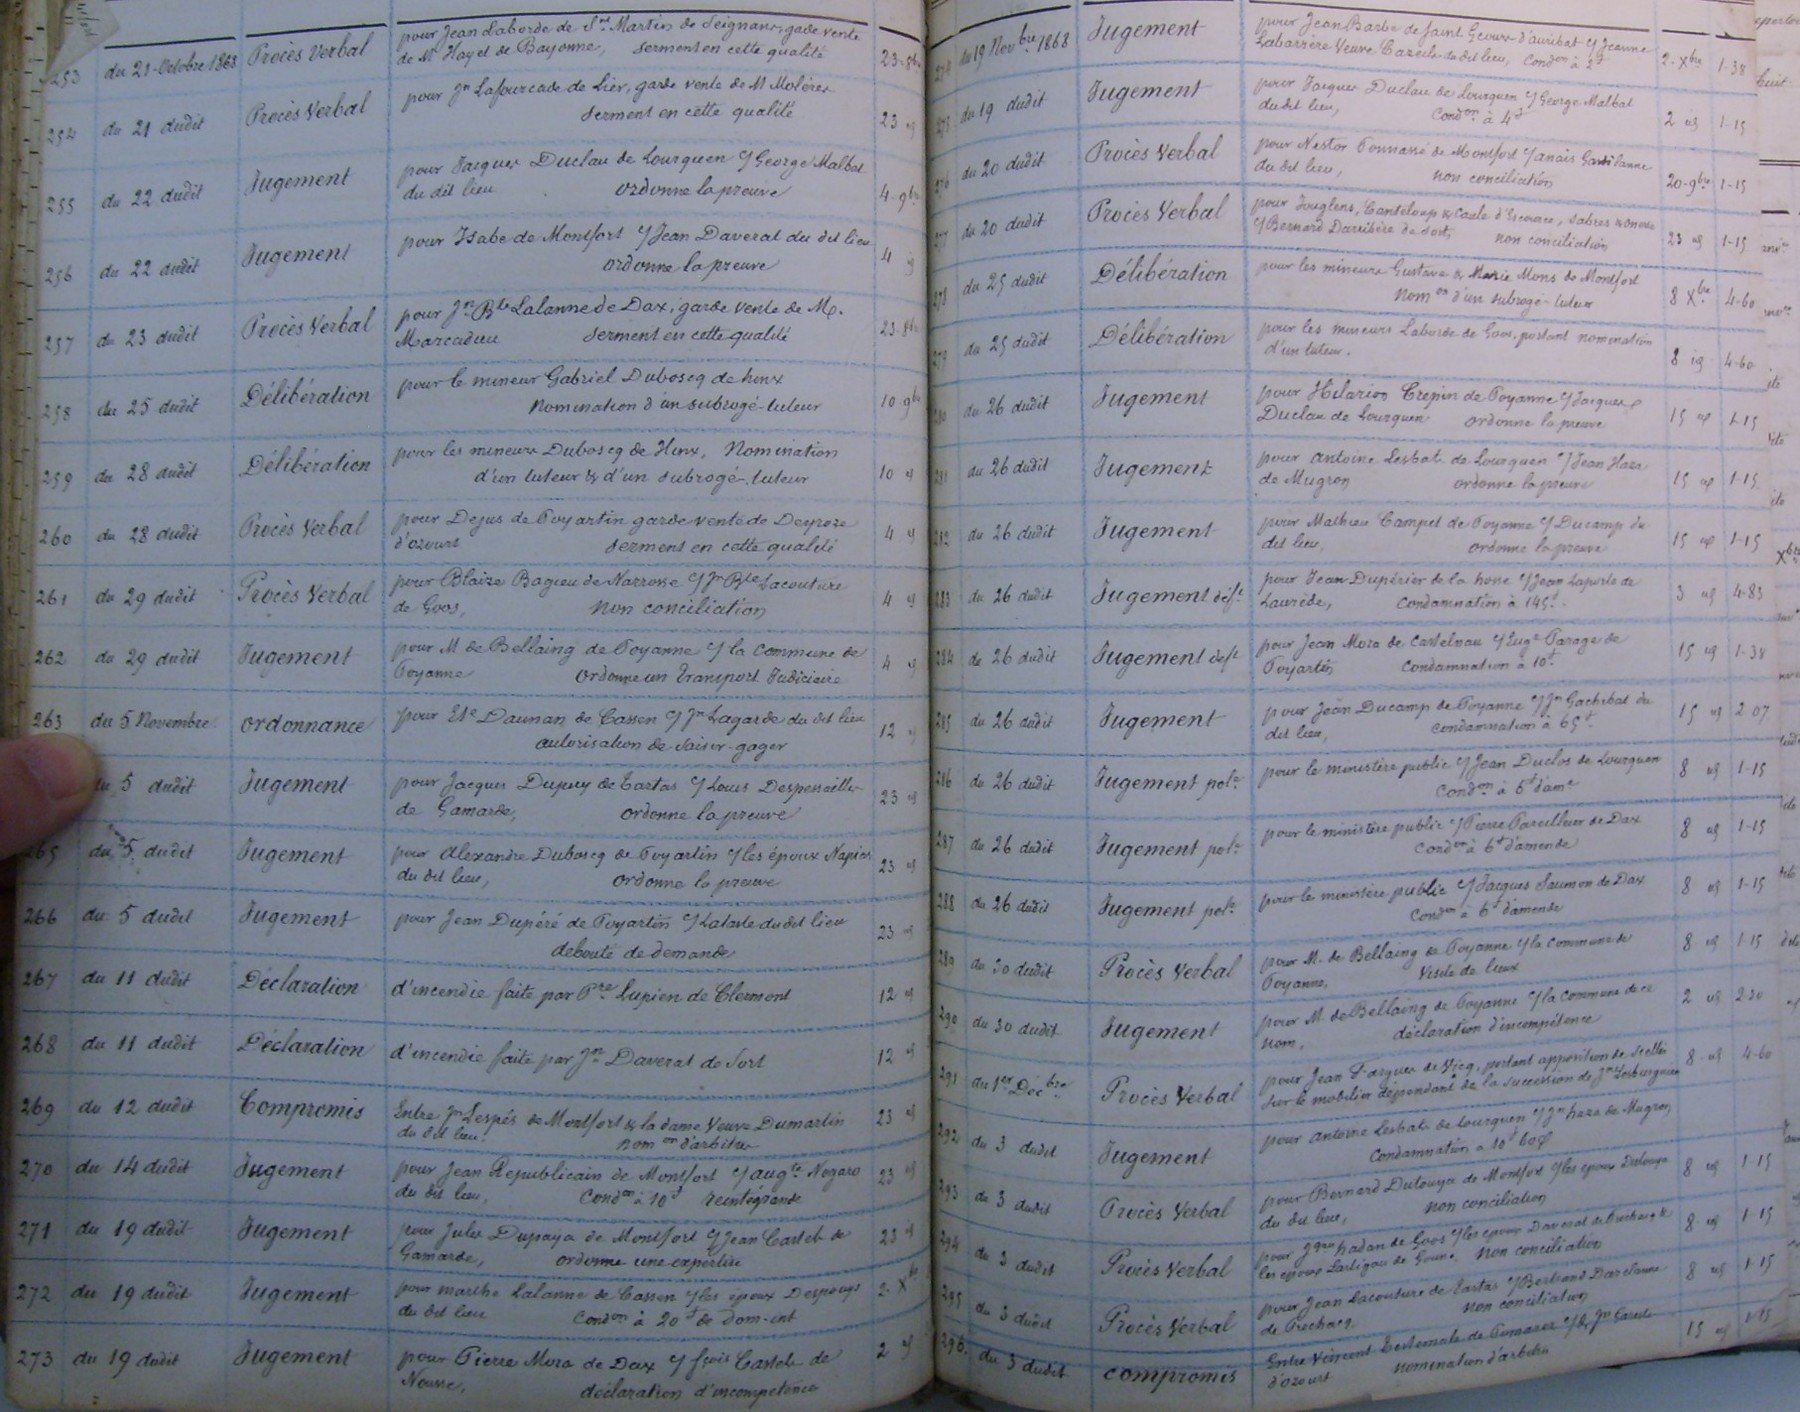 253 du 21 Octobre 1868 Procès Verbal pour Jean Laborde de St Martin de Seignanx, garde vente
de Mr Hayet de Bayonne, serment en cette qualité 23-8bre
254 du 21 dudit Procès Verbal pour Jn Lafourcade de Lier, garde vente de M Molères
serment en cette qualité 23
255 du 22 dudit Jugement pour Jacques Duclau de Lourquen c/ George Malbat
du dit lieu ordonne la preuve 4-9bre
256 du 22 dudit Jugement pour Isabe de Montfort c/ Jean Daverat du dit lieu
ordonne la preuve 4
257 du 23 dudit Procès Verbal pour Jn Bte Lalanne de Dax, garde vente de M.
Marcadieu serment en cette qualité 23-8bre
258 du 25 dudit Délibération pour le mineur Gabriel Duboscq de hinx
Nomination d'un subrogé-tuteur 10 9bre
259 du 28 dudit Délibération pour les mineurs Duboscq de Hinx, Nomination
d'un tuteur & d'un subrogé-tuteur 10
260 du 28 dudit Procès Verbal pour Dejus de Poyartin garde vente de Deyroze
d'ozourt serment en cette qualité 4
261 du 29 dudit Procès Verbal pour Blaize Bagieu de Narrosse c/ Jn Bte Lacouture
de Goos, non conciliation 4
262 du 29 dudit Jugement pour M de Bellaing de Poyanne c/ la Commune de
Poyanne ordonne un Transport Judiciaire 4
263 du 5 Novembre ordonnance pour Daunan de Cassen c/ Jn Lagarde du dit lieu
autorisation de saisir-gager 12
du 5 dudit Jugement pour Jacques Dupuy de Tartas c/ Louis Despessailles
de Gamarde, ordonne la preuve 23
265 du 5 dudit Jugement pour Alexandre Duboscq de Poyartin c/ les époux Napias
du dit lieu, ordonne la preuve 23
266 du 5 dudit Jugement pour Jean Dupéré de Poyartin c/ Lalaste du dit lieu
deboute de demande 23
267 du 11 dudit Déclaration d'incendie faite par Pre Lupien de Clermont 12
268 du 11 dudit Déclaration d'incendie faite par Jn Daverat de Sort 12
269 du 12 dudit Compromis Entre Jn Lespés de Montfort & la dame Veuve Dumartin
du dit lieu. nom on d'arbitre 23
270 du 14 dudit Jugement pour Jean Republicain de Montfort c/ augte Nogaro
du dit lieu, Condon à 10f réintégrande 23
271 du 19 dudit Jugement pour Jules Dupaya de Montfort c/ Jean Casteb de
Gamarde, ordonne une expertise 23
272 du 19 dudit Jugement pour marthe Lalanne de Cassen c/ les époux Despouys
du dit lieu Condon à 20f de dom-int 2-Xbre
273 du 19 dudit Jugement pour Pierre Mora de Dax c/ fçois Casteb de
Nousse, déclaration d'incompétence 2
274 du 19 Novbre 1868 Jugement pour Jean Barbe de Saint Geours d'auribat c/ Jeanne
Labarrère Veuve Cazeils du dit lieu, Condon à 2f 2-Xbre 1-38
275 du 19 dudit Jugement pour Jacques Duclau de Lourquen c/ George Malbat
du dit lieu, Condon à 4f 2 1-15
276 du 20 dudit Procès Verbal pour Nestor Pounassé de Montfort c/ anaïs Lanne
du dit lieu, non conciliation 20-9bre 1-15
277 du 20 dudit Procès Verbal pour Jouglens, Canteloup & Caule d'Escource, Sabres & onesse
c/ Bernard Darribère de Sort, non conciliation 23 1-15
278 du 25 dudit Délibération pour les mineurs Gustave & Marie Mons de Montfort
Nomon d'un subrogé-tuteur 8 Xbre 4-60
279 du 25 dudit Délibération pour les mineurs Laborde de Goos, portant nomination
d'un tuteur. 8 4-60
280 du 26 dudit Jugement pour Hilarion Crepin de Poyanne c/ Jacques
Duclau de Lourquen ordonne la preuve 15 1-15
281 du 26 dudit Jugement pour antoine Lesbats de Lourquen c/ Jean Haza
de Mugron ordonne la preuve 15 1-15
282 du 26 dudit Jugement pour Mathieu Campet de Poyanne c/ Ducamp du
dit lieu, ordonne la preuve 15 1-15
283 du 26 dudit Jugement déft pour Jean Dupérier de la hosse c/ Jean Laporte de
Laurède, Condamnation à 145f. 3 4-83
284 du 26 dudit Jugement deft pour Jean Mora de Castelnau c/ Euge Parage de
Poyartin Condamnation à 10f 15 1-38
285 du 26 dudit Jugement pour Jean Ducamp de Poyanne c/ Jn Gachibat du
dit lieu, Condamnation à 65f 15 2 07
286 du 26 dudit Jugement pole pour le ministère public c/ Jean Duclos de Lourquen
Condon à 6f d'ame 8 1-15
287 du 26 dudit Jugement pole pour le ministère public c/ Pierre Pareilleux de Dax
Condon à 6f d'amende 8 1-15
288 du 26 dudit Jugement pole pour le ministère public c/ Jacques Saumon de Dax
Condon à 6f d'amende 8 1-15
289 du 30 dudit Procès Verbal pour M. de Bellaing de Poyanne c/ la Commune de
Poyanne, Visite de lieux 8 1-15
290 du 30 dudit Jugement pour M. de Bellaing de Poyanne c/ la Commune de ce
nom, déclaration d'incompétence 2 2 30
291 du 1er Décbre Procès Verbal pour Jean Farques de Vicq, portant apposition de scellés
sur le mobilier dépendant de la succession de Jn Lesburgues 8 4-60
292 du 3 dudit Jugement pour antoine Lesbats de Lourquen c/ Jn haza de Mugron
Condamnation à 10f 60c
293 du 3 dudit Procès Verbal pour Bernard Dutouya de Montfort c/ les époux
du dit lieu, non conciliation 8 1-15
294 du 3 dudit Procès Verbal pour hadan de Goos c/ les époux Daverat de Prechacq &
les époux Lartigau de Gousse, Non conciliation 8 1-15
295 du 3 dudit Procès Verbal pour Jean Lacouture de Tartas c/ Bertrand Darclanne
de Prechacq, non conciliation 8 1-15
296. du 3 dudit compromis Entre Vincent de Pomarez &
d'ozourt nomination d'arbitre 15 1-15